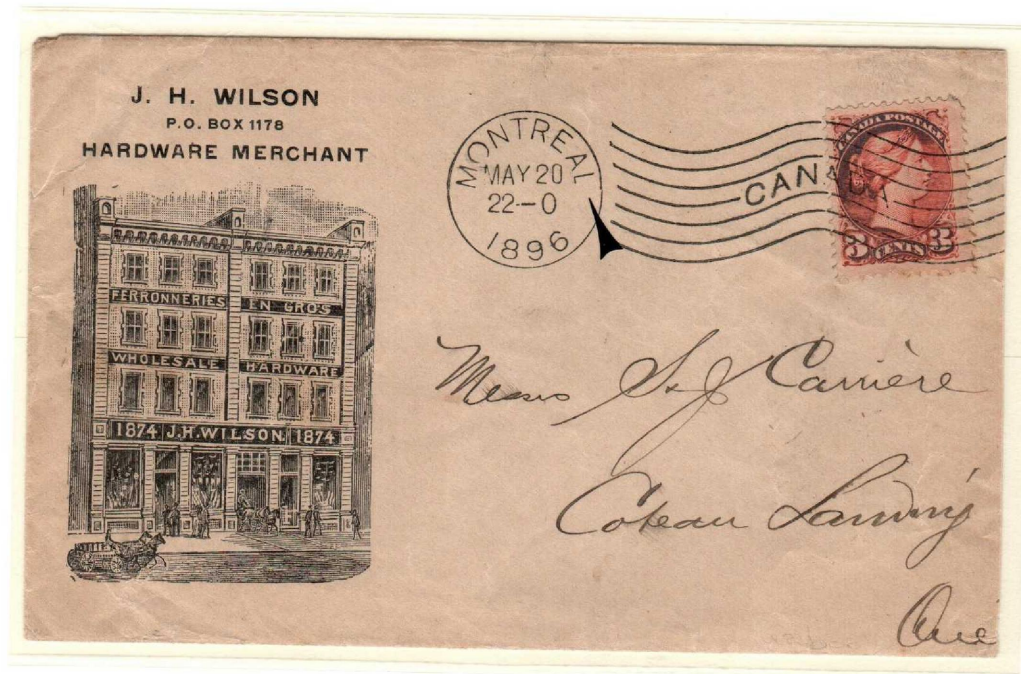 J. H. WILSON
P.O. BOX 1178
HARDWARE MERCHANT
FERRONNERIES EN GROS
WHOLESALE HARDWARE
1874 J.H. WILSON. 1874
MONTREAL
MAY 20
22—0
1896
CANADA
CANADA POSTAGE
3 CENTS 3
Messrs S & J Carrière
Coteau Landing
Que